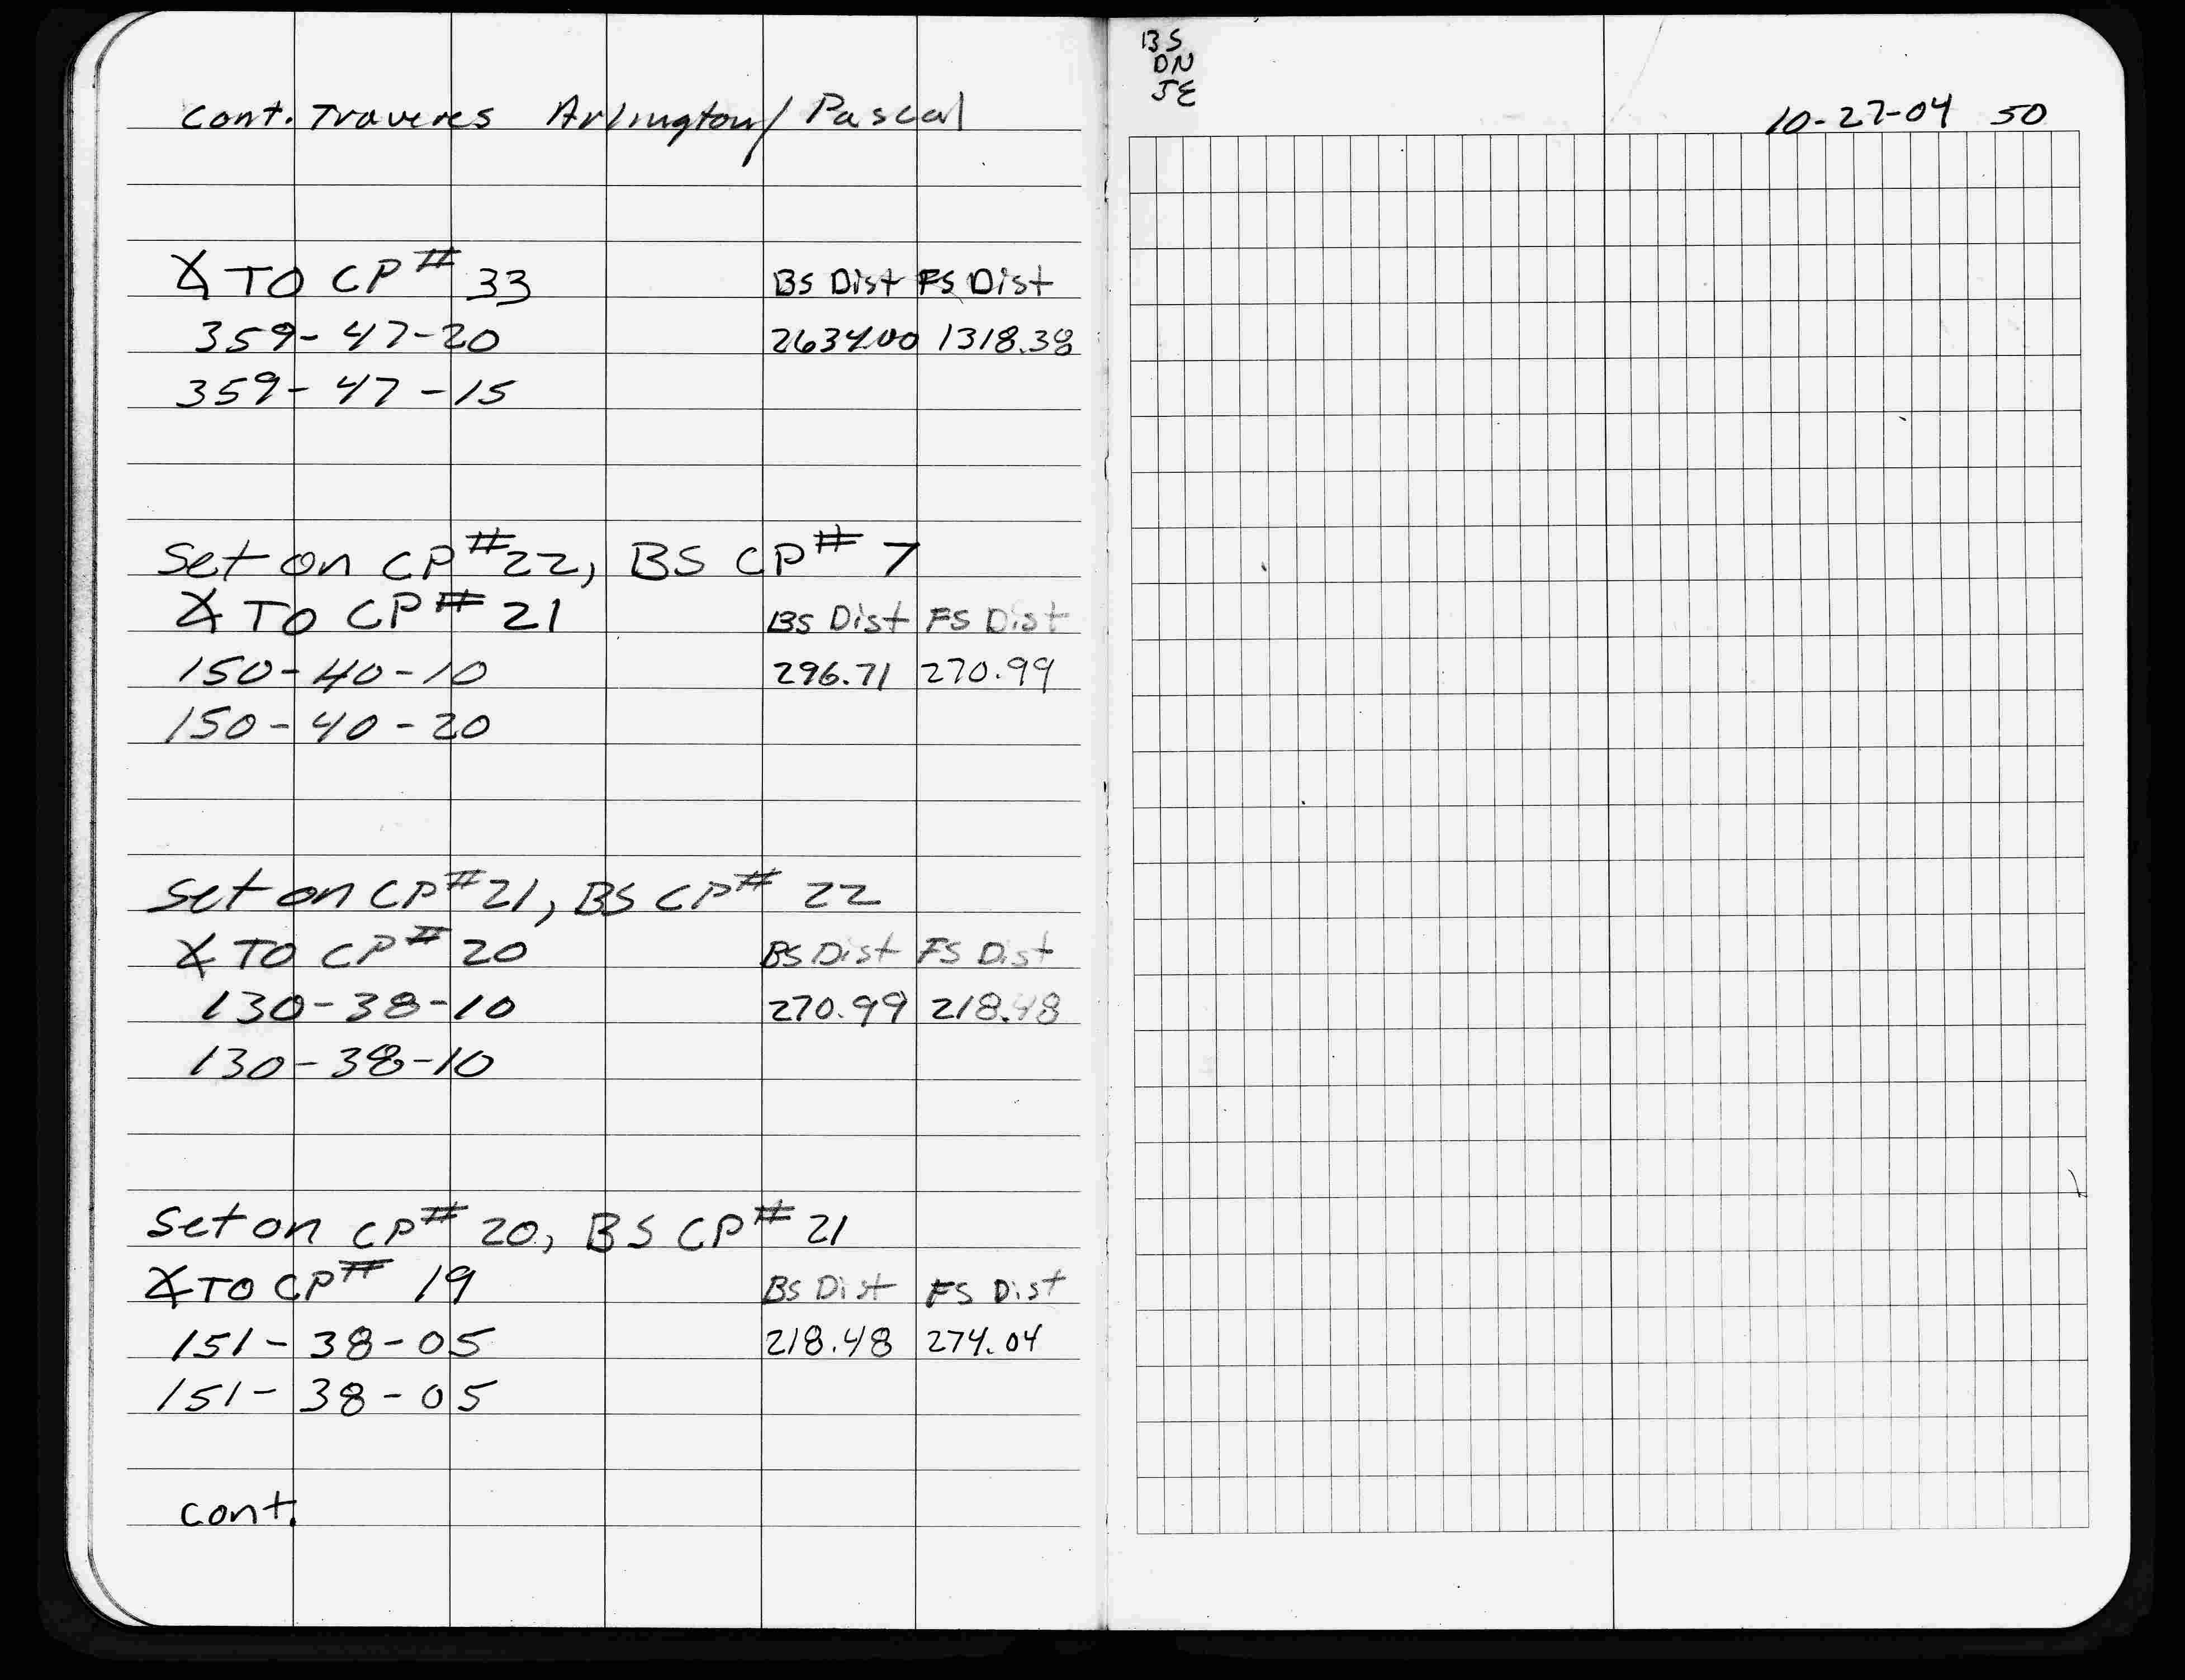 cont. Traveres Arlington/ Pascal
∡ TO CP# 33 BS Dist FS Dist
359-47-20 2634.00 1318.38
359-47-15
Set on CP#22, BS CP# 7
∡ TO CP# 21 BS Dist FS Dist
150-40-10 296.71 270.99
150-40-20
Set on CP#21, BS CP# 22
∡ TO CP# 20 BS Dist FS Dist
130-38-10 270.99 218.48
130-38-10
Set on CP# 20, BS CP# 21
∡ TO CP# 19 BS Dist FS Dist
151-38-05 218.48 274.04
151-38-05
cont.
BS
DN
JE
10-27-04 50